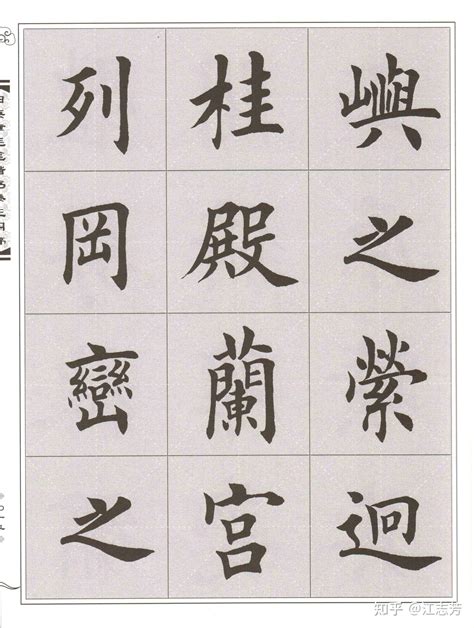 嶼之縈迴
桂殿蘭宮
列岡巒之
知乎 @江志芳